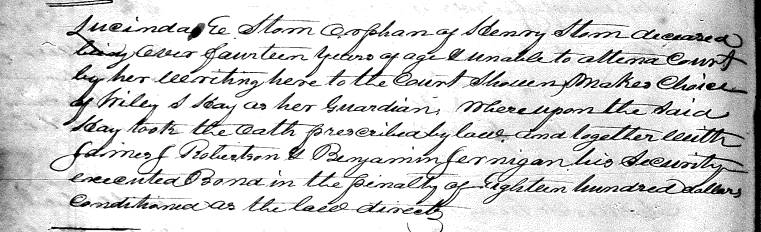 Lucinda E Stom Orphan of Henry Stom deceased
being over fourteen years of age & unable to attend Court
by her writing here to the Court Shown, Makes Choice
of Wiley S Hay as her Guardian, Whereupon the Said
Hay took the Oath prescribed by law and together with
James J Robertson & Benjamin Jernigan his Security
executed Bond in the penalty of Eighteen hundred dollars
Conditioned as the law directs